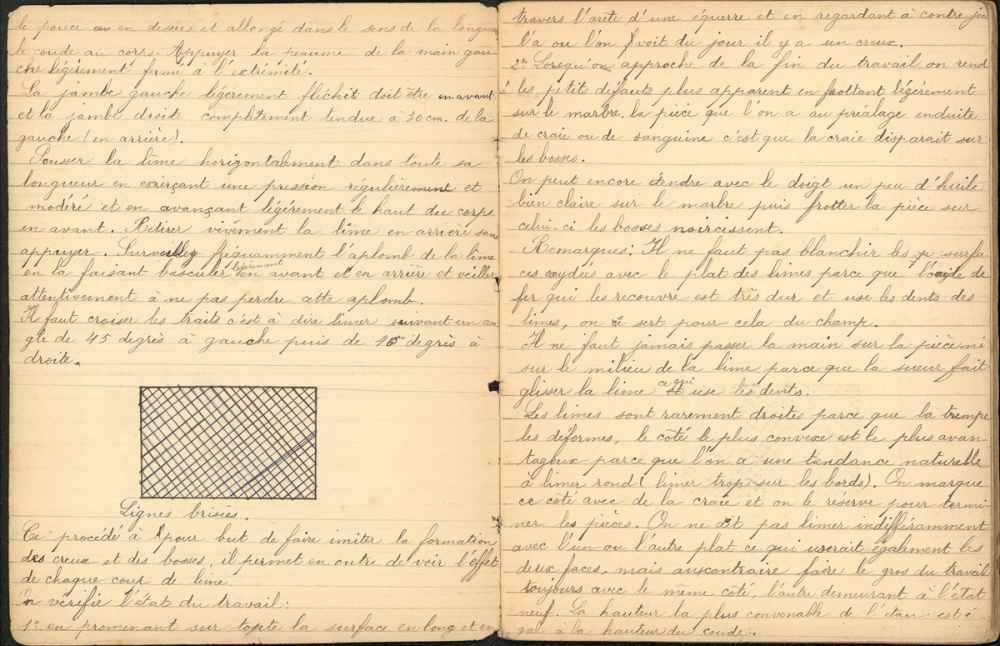 le pouce en dessus et allongé dans le sens de la longueur
le coude au corps. Appuyer la peaume de la main gau-
che légèrement fermé à l'extrémité.
La jambe gauche légèrement fléchit doit être en avant
et la jambe droit complètement tendue à 30 cm. de la
gauche (en arrière).
Pousser la lime horizontalement dans toute sa
longueur en exerçant une pression régulièrement et
modéré et en avançant légèrement le haut du corps
en avant. Retirer vivement la lime en arrière sans
appuyer. Surveiller fréquamment l'aplomb de la lime
en la faisant basculer légèrement en avant et en arrière et veiller
attentivement à ne pas perdre cette aplomb.
Il faut croiser les traits c'est à dire limer suivant un an
gle de 45 degrés à gauche puis de 45 degrés à
droite.
Lignes brisées.
Ce procédé à pour but de faire imiter la formation
des creux et des bosses, il permet en outre de voir l'effet
de chaque coup de lime.
On vérifie l'état du travail:
1º en promenant sur toute la surface en long et en
travers l'arête d'une équerre et en regardant à contre jour
l'a ou l'on voit du jour il y a un creux.
2º Lorsqu'on approche de la fin du travail on rend
les petits défauts plus apparent en frottant légèrement
sur le marbre. la pièce que l'on a au préalage enduite
de craie ou de sanguine c'est que la craie disparait sur
les bosses.
On peut encore étendre avec le doigt un peu d'huile
bien claire sur le marbre puis frotter la pièce sur
celui-ci les bosses noircissent.
Remarques: Il ne faut pas blanchir les surfa
ces oxydées avec le plat des limes parce que l'oxyde de
fer qui les recouvre est très dur et use les dents des
limes, on se sert pour cela du champ.
Il ne faut jamais passer la main sur la pièce ni
sur le milieu de la lime parce que la sueur fait
glisser la lime ce qui use les dents.
Les limes sont rarement droites parce que la trempe
les déformes, le côté le plus convexe est le plus avan-
tageux parce que l'on a une tendance naturelle
à limer rond (limer trop sur les bords). On marque
ce côté avec de la craie et on le réserve pour termi
ner les pièces. On ne doit pas limer indifféramment
avec l'un ou l'autre plat ce qui userait également les
deux faces, mais aucontraire faire le gros du travail
toujours avec le même côté, l'autre demeurant à l'état
neuf. La hauteur la plus convenable de l'étau est é-
gal à la hauteur du coude.